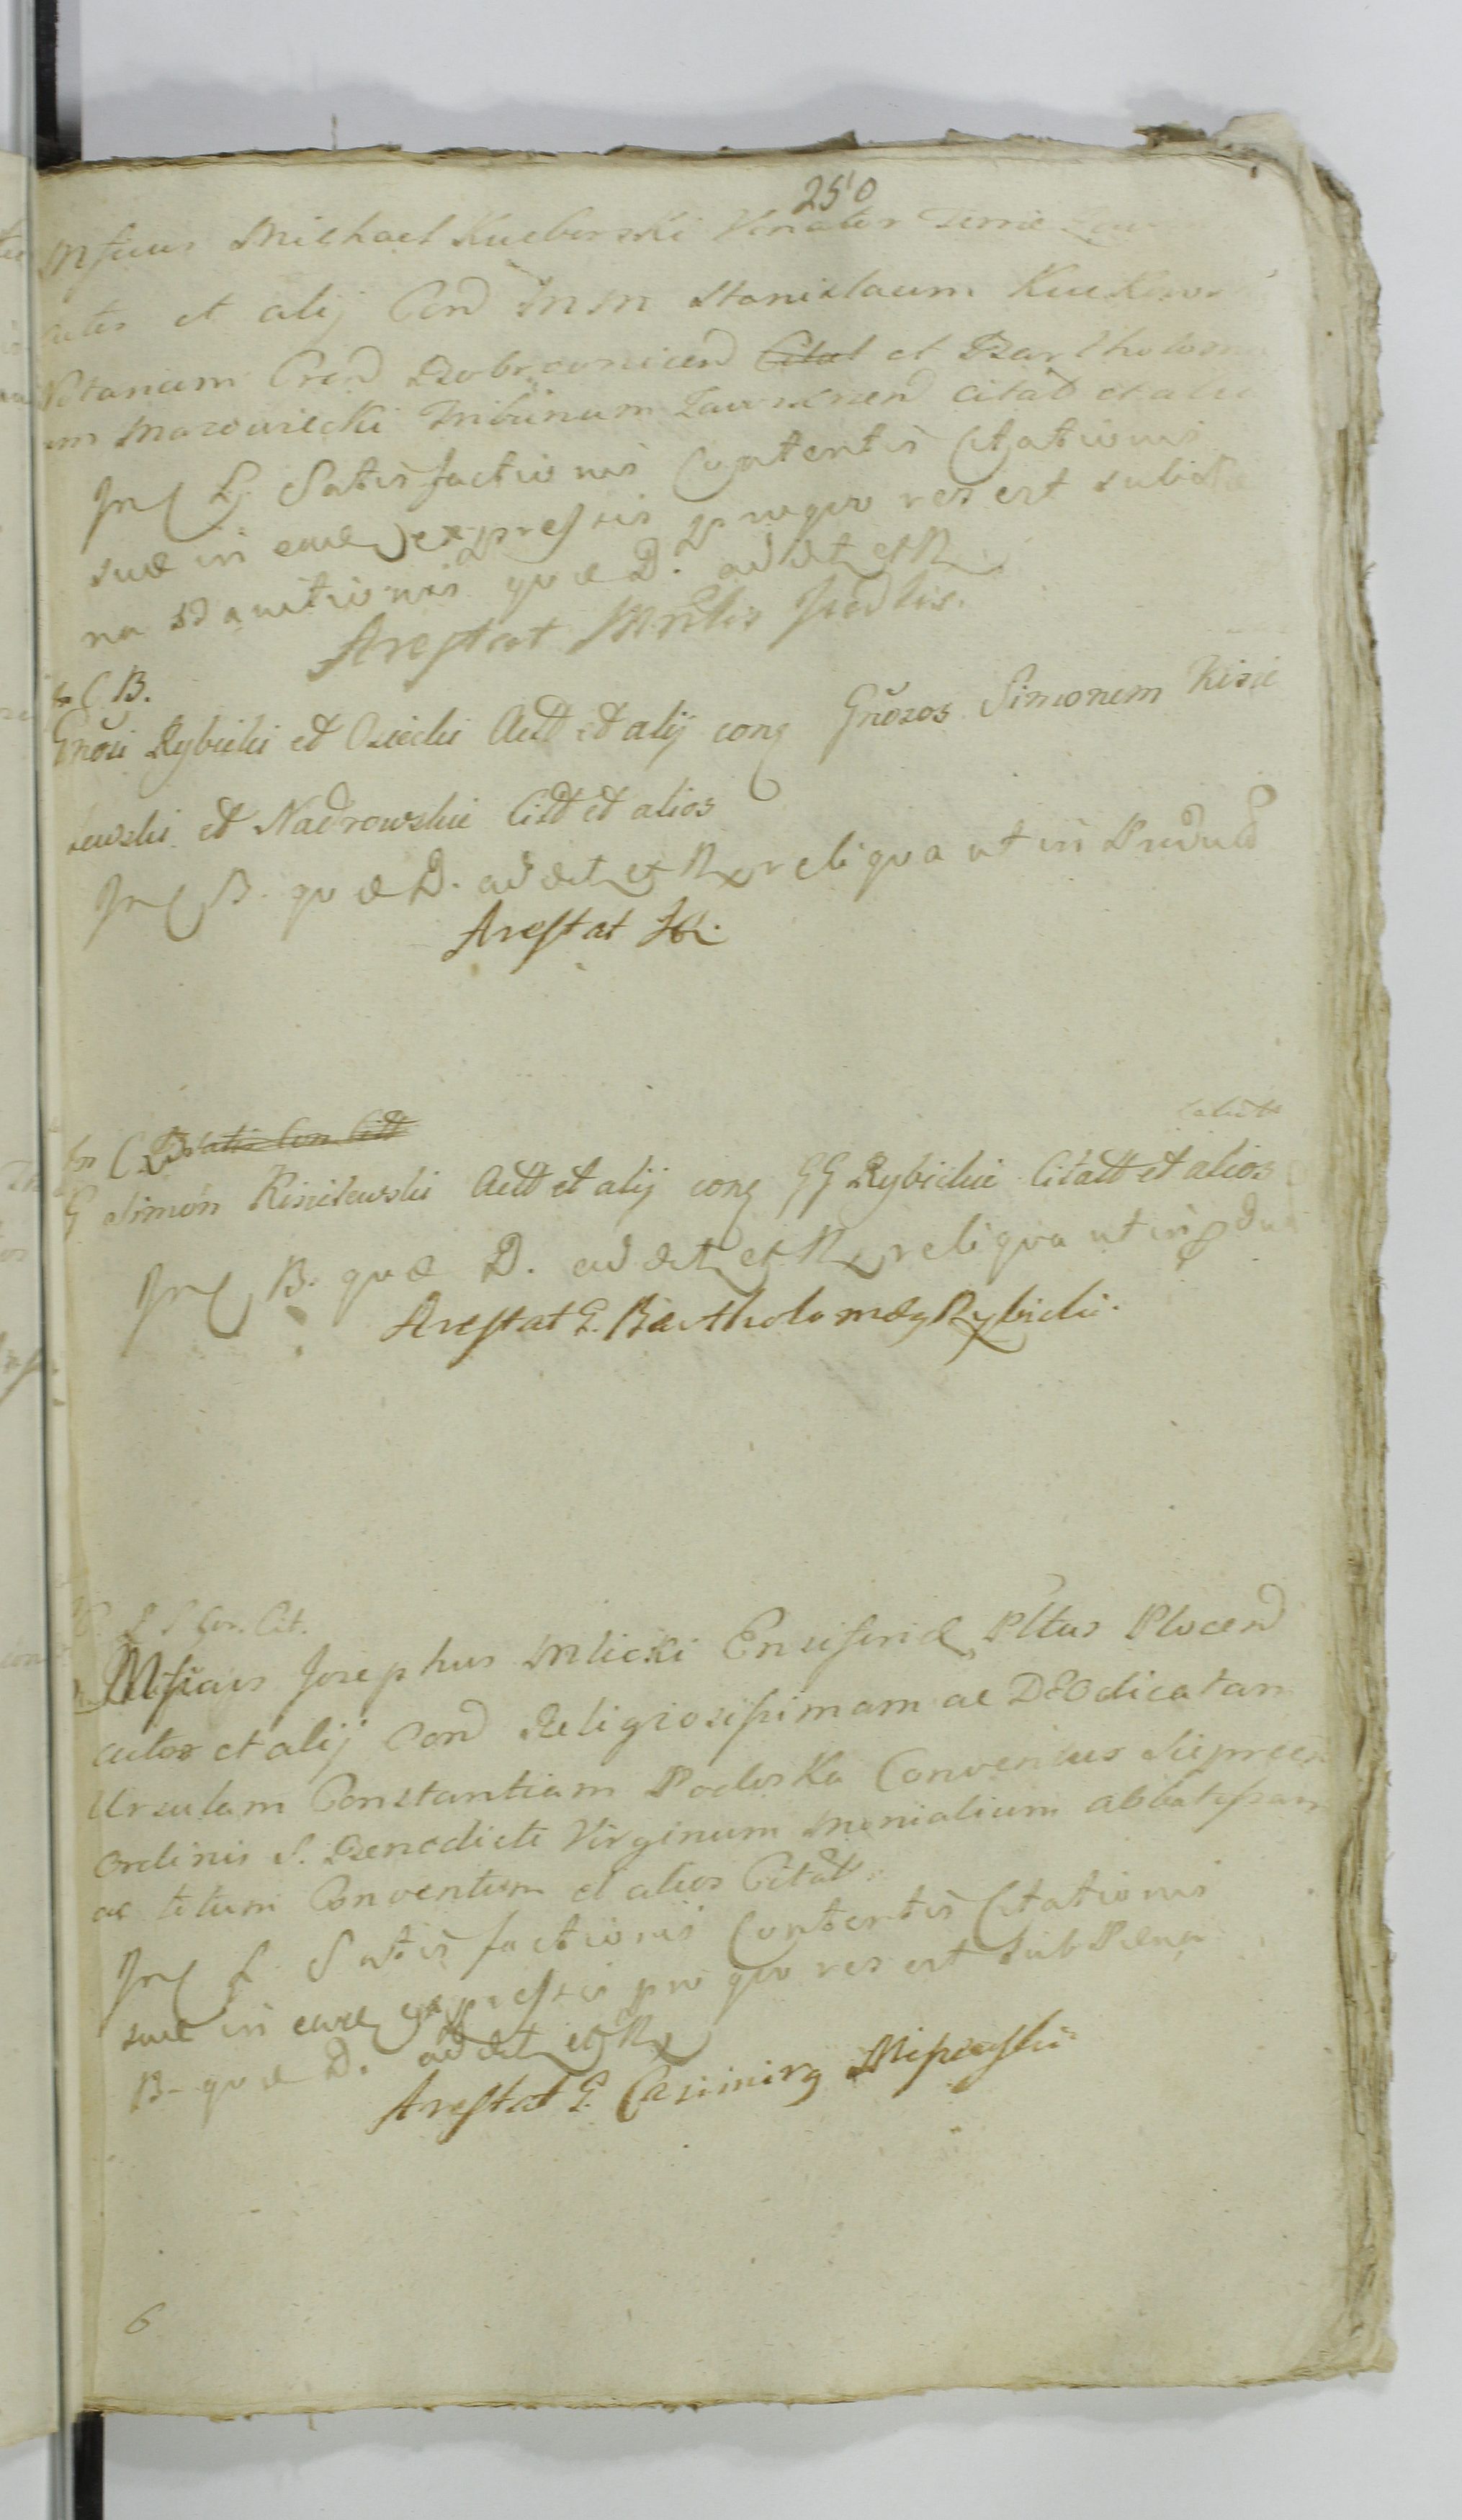 250
Mficus Michael Kucborski Venator Terrae Zaw
et alij Con MM Stanislaum Kuckows
Notarium Cren Dobrzynicen Citat et Bartholom
um Mazowiecki Tribunum Zawscren citat et alio
In C L. Satisfactionis Contentis Citationis
suae in eave expressis pro quo res est sub
na quae D. addet et R
Arestat Mntlis
in C B.
Gnosi Rybicki et Osiecki Actt et alij cong Gnosos Simonem Kisie
lewski et Nadrowskie Citt et alios
In C B. quae D. addet et R reliqua ut in
Arestat
in C
G Simon Kisielewski Actt et alij cong GG Rybickie Citatt et alios
In C B. quae D. addet et R reliqua ut in
Arestat G. Bartholomaeg Rybicki.
C. L S Con. Cit.
Mficus Josephus Mlicki Ensiferidae Pltus Plocen
cutor et alij Con Religiosissimam ac DEOdicatam
Ursulam Constantiam Podoska Conventus Sieprcen
Ordinis S. Benedicti Virginum Monialium abbatissam
ac totum Conventum et alios Citat
In C L Satisfactionis Contentis Citationis
suae in eave expressis pro quo res est sub Paena
B- quae D. addet et R
Arestat G. Casimirg
6